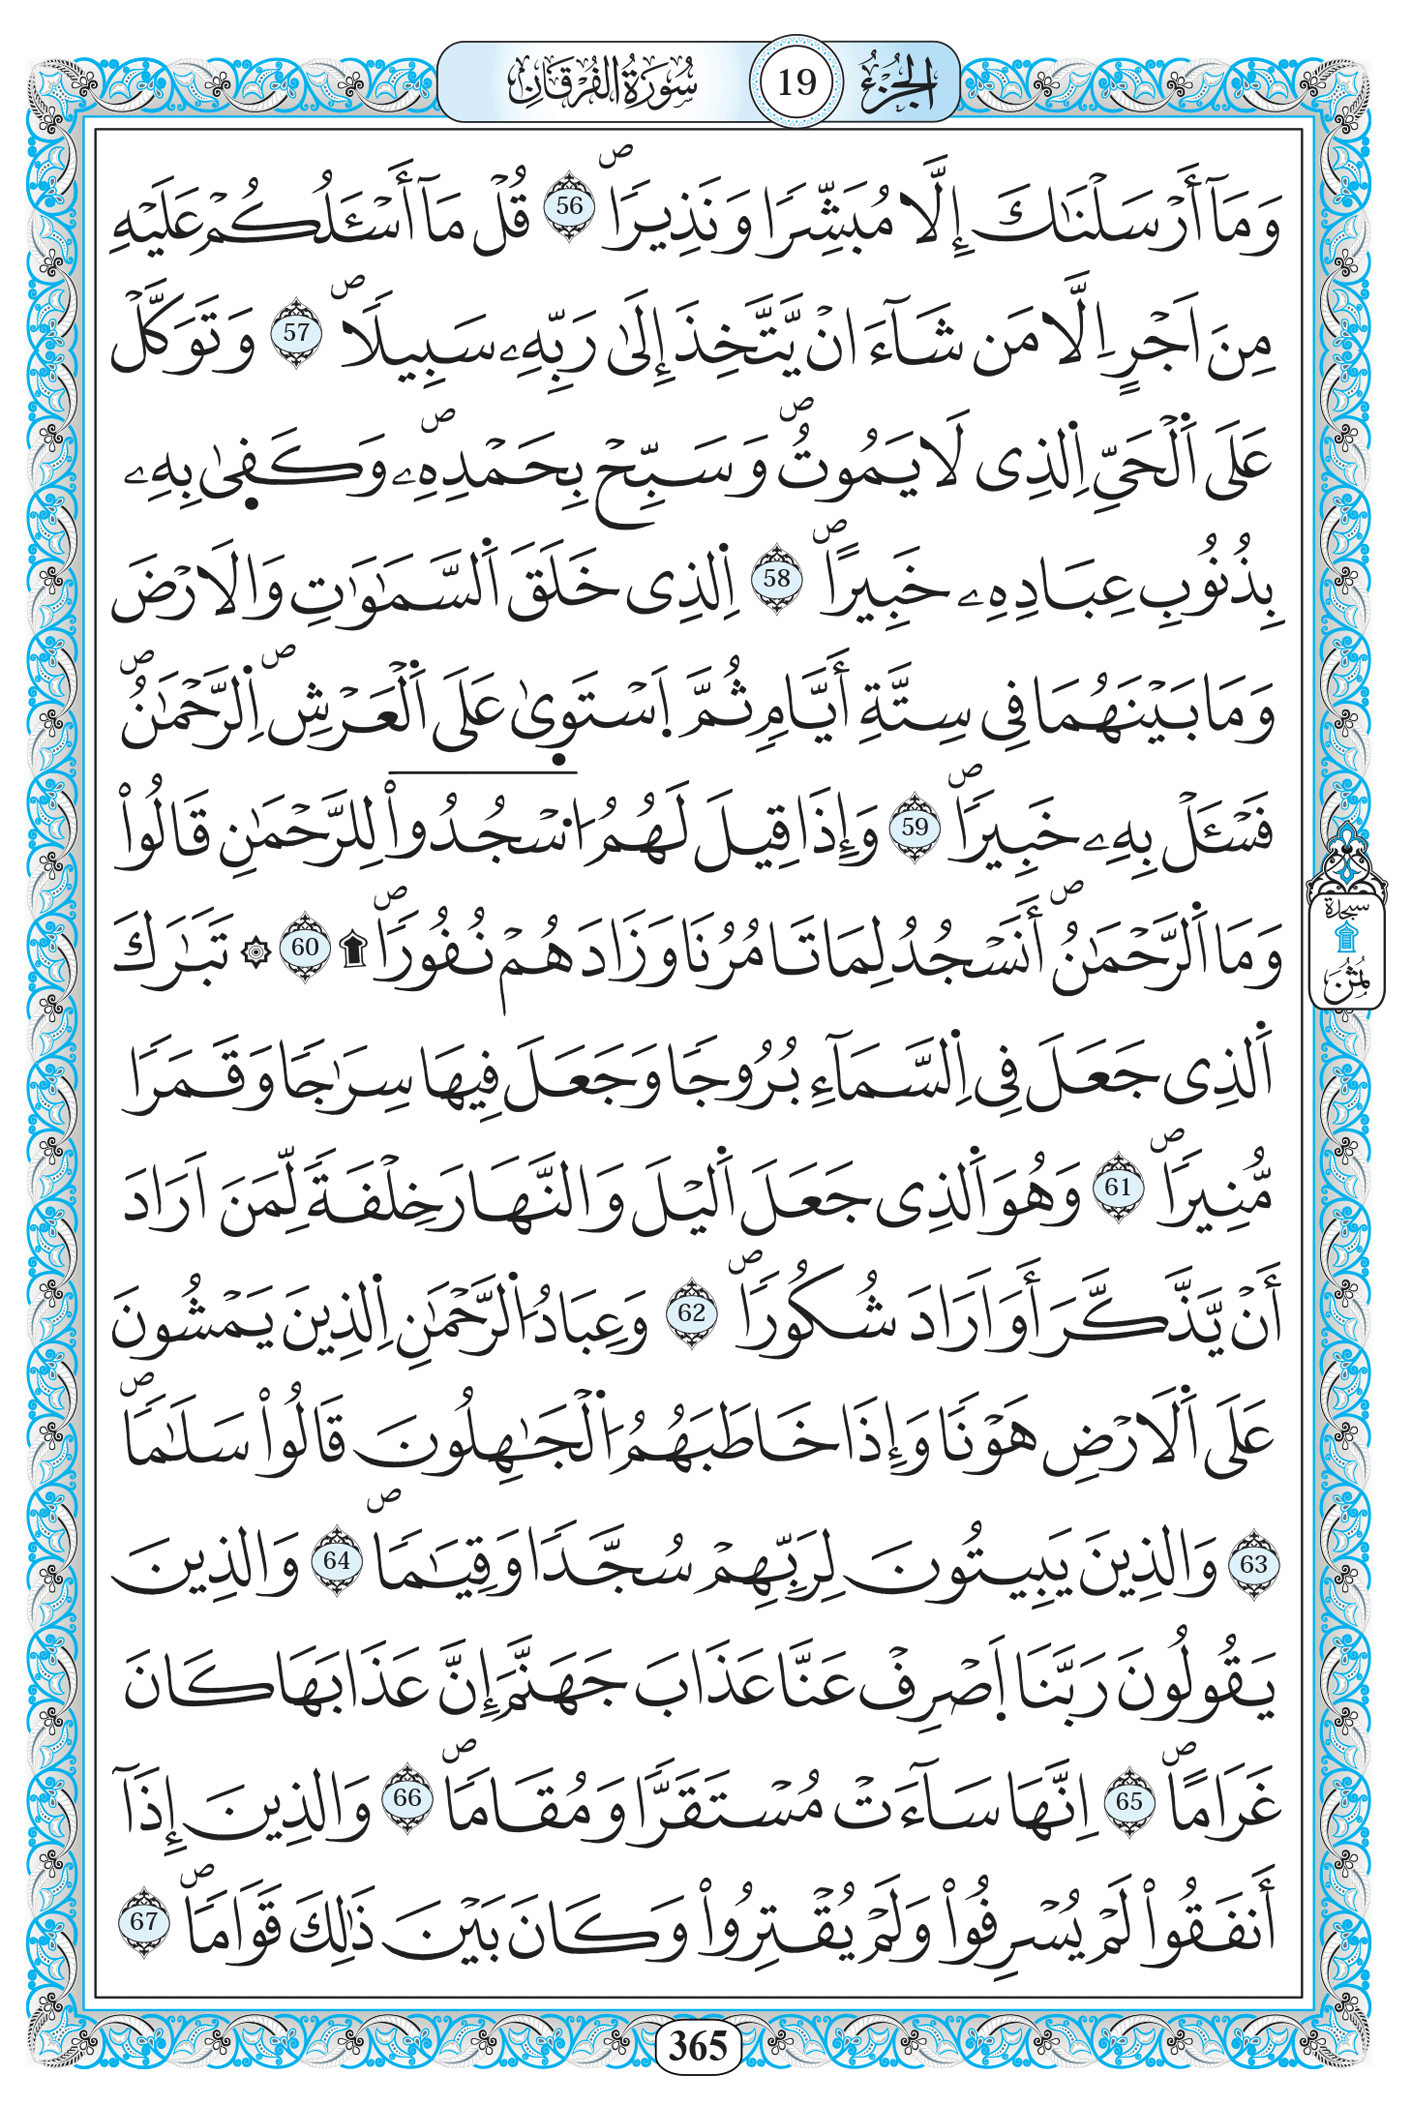 الجزء 19 سورة الفرقان
وَمَآ أَرْسَلْنَٰكَ إِلَّا مُبَشِّرًا وَنَذِيرًا ۖ 56 قُلْ مَآ أَسْـَٔلُكُمْ عَلَيْهِ
مِنَ اَجْرٍ اِلَّا مَن شَآءَ انْ يَّتَّخِذَ إِلَىٰ رَبِّهِۦ سَبِيلًا ۖ 57 وَتَوَكَّلْ
عَلَى اَ۬لْحَيِّ اِ۬لذِى لَا يَمُوتُ ۖ وَسَبِّحْ بِحَمْدِهِۦ ۖ وَكَفٜىٰ بِهِۦ
بِذُنُوبِ عِبَادِهِۦ خَبِيرًا ۖ 58 اِ۬لذِى خَلَقَ اَ۬لسَّمَٰوَٰتِ وَالَارْضَ
وَمَا بَيْنَهُمَا فِى سِتَّةِ أَيَّامٖ ثُمَّ اَ۪سْتَوٜىٰ عَلَى اَ۬لْعَرْشِ ۖ اِ۬لرَّحْمَٰنُ ۖ
فَسْـَٔلْ بِهِۦ خَبِيرًا ۖ 59 وَإِذَا قِيلَ لَهُمُ اُ۟سْجُدُواْ لِلرَّحْمَٰنِ قَالُواْ
وَمَا اَ۬لرَّحْمَٰنُ أَنَسْجُدُ لِمَا تَامُرُنَا وَزَادَهُمْ نُفُورًا ۖ ۩ 60 ۞ تَبَٰرَكَ
اَ۬لذِى جَعَلَ فِى اِ۬لسَّمَآءِ بُرُوجًا وَجَعَلَ فِيهَا سِرَٰجًا وَقَمَرًا
مُّنِيرًا ۖ 61 وَهُوَ اَ۬لذِى جَعَلَ اَ۬ليْلَ وَالنَّهَارَ خِلْفَةً لِّمَنَ اَرَادَ
أَنْ يَّذَّكَّرَ أَوَ اَرَادَ شُكُورًا ۖ 62 وَعِبَادُ اُ۬لرَّحْمَٰنِ اِ۬لذِينَ يَمْشُونَ
عَلَى اَ۬لَارْضِ هَوْنًا وَإِذَا خَاطَبَهُمُ اُ۬لْجَٰهِلُونَ قَالُواْ سَلَٰمًا ۖ
63 وَالذِينَ يَبِيتُونَ لِرَبِّهِمْ سُجَّدًا وَقِيَٰمًا ۖ 64 وَالذِينَ
يَقُولُونَ رَبَّنَا اَ۪صْرِفْ عَنَّا عَذَابَ جَهَنَّمَ إِنَّ عَذَابَهَا كَانَ
غَرَامًا ۖ 65 اِنَّهَا سَآءَتْ مُسْتَقَرًّا وَمُقَامًا ۖ 66 وَالذِينَ إِذَآ
أَنفَقُواْ لَمْ يُسْرِفُواْ وَلَمْ يُقْتِرُواْ وَكَانَ بَيْنَ ذَٰلِكَ قَوَامًا ۖ 67
سجدة
ثمن
365